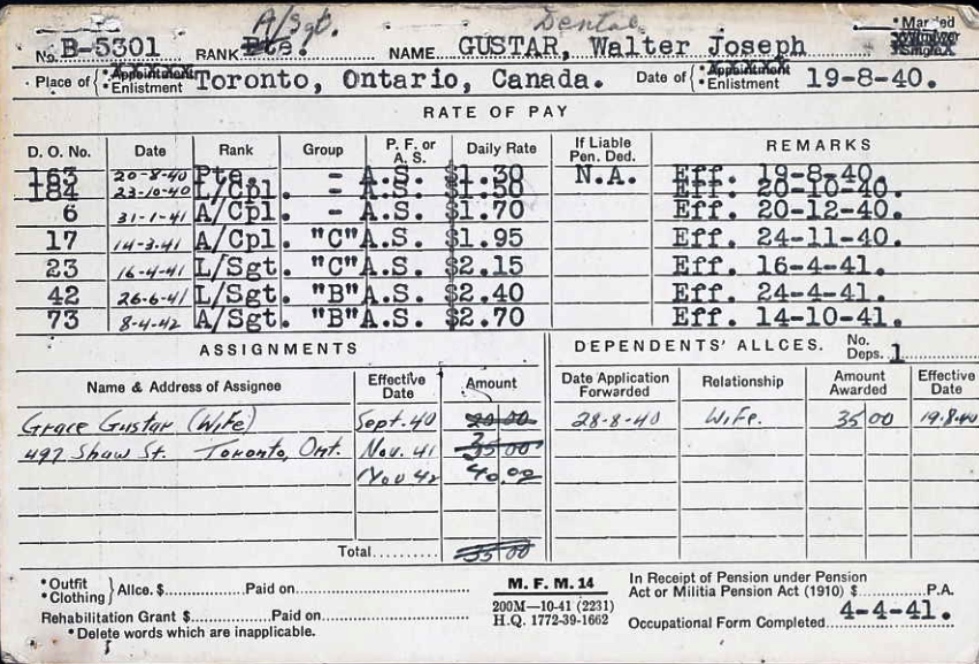 A/Sgt. Dental
No. B-5301 RANK Pte. NAME GUSTAR, Walter Joseph *Married
Place of { *Appointment Enlistment Toronto, Ontario, Canada. Date of { *Appointment Enlistment 19-8-40.
RATE OF PAY
D. O. No. Date Rank Group P. F. or A. S. Daily Rate If Liable Pen. Ded. REMARKS
163 20-8-40 Pte. - A.S. $1.30 N.A. Eff. 19-8-40.
184 23-10-40 L/Cpl. - A.S. $1.50 Eff. 20-10-40.
6 31-1-41 A/Cpl. - A.S. $1.70 Eff. 20-12-40.
17 14-3-41 A/Cpl. "C" A.S. $1.95 Eff. 24-11-40.
23 16-4-41 L/Sgt. "C" A.S. $2.15 Eff. 16-4-41.
42 26-6-41 L/Sgt. "B" A.S. $2.40 Eff. 24-4-41.
73 8-4-42 A/Sgt. "B" A.S. $2.70 Eff. 14-10-41.
ASSIGNMENTS DEPENDENTS' ALLCES. No. Deps. 1
Name & Address of Assignee Effective Date Amount Date Application Forwarded Relationship Amount Awarded Effective Date
Grace Gustar (Wife) Sept. 40 20 00 28-8-40 Wife. 35 00 19-8-40
497 Shaw St. Toronto, Ont. Nov. 41 35 00
Nov 42 40.00
Total.......... 35 00
*Outfit *Clothing } Allce. $.................. Paid on..............................
Rehabilitation Grant $.................. Paid on..............................
*Delete words which are inapplicable.
M. F. M. 14
200M—10-41 (2231)
H.Q. 1772-39-1662
In Receipt of Pension under Pension
Act or Militia Pension Act (1910) $..................P.A.
Occupational Form Completed 4-4-41.